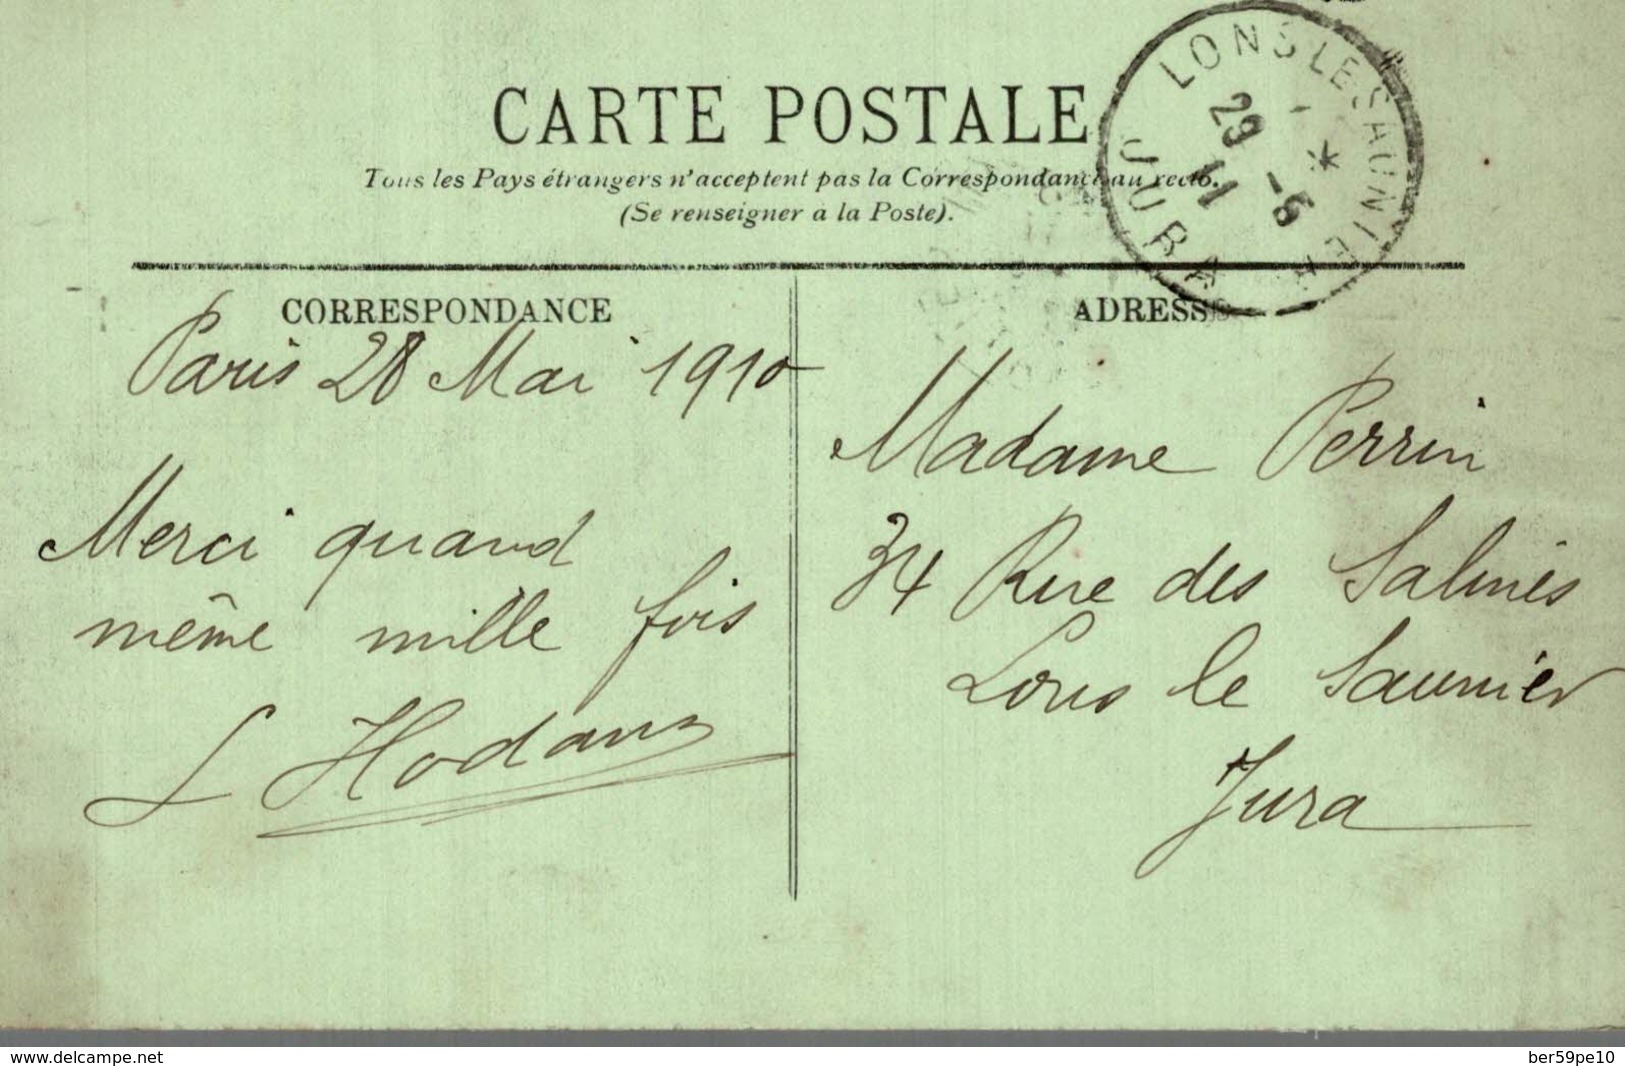 CARTE POSTALE
Tous les Pays étrangers n'acceptent pas la Correspondance au recto.
(Se renseigner a la Poste).
LONS LE SAUNIER
29 -5
11
JURA
CORRESPONDANCE
Paris 28 Mai 1910
Merci quand
même mille fois
L Hodanz
ADRESSE
Madame Perrin
34 Rue des Salines
Lons le Saunier
Jura
www.delcampe.net
ber59pe10